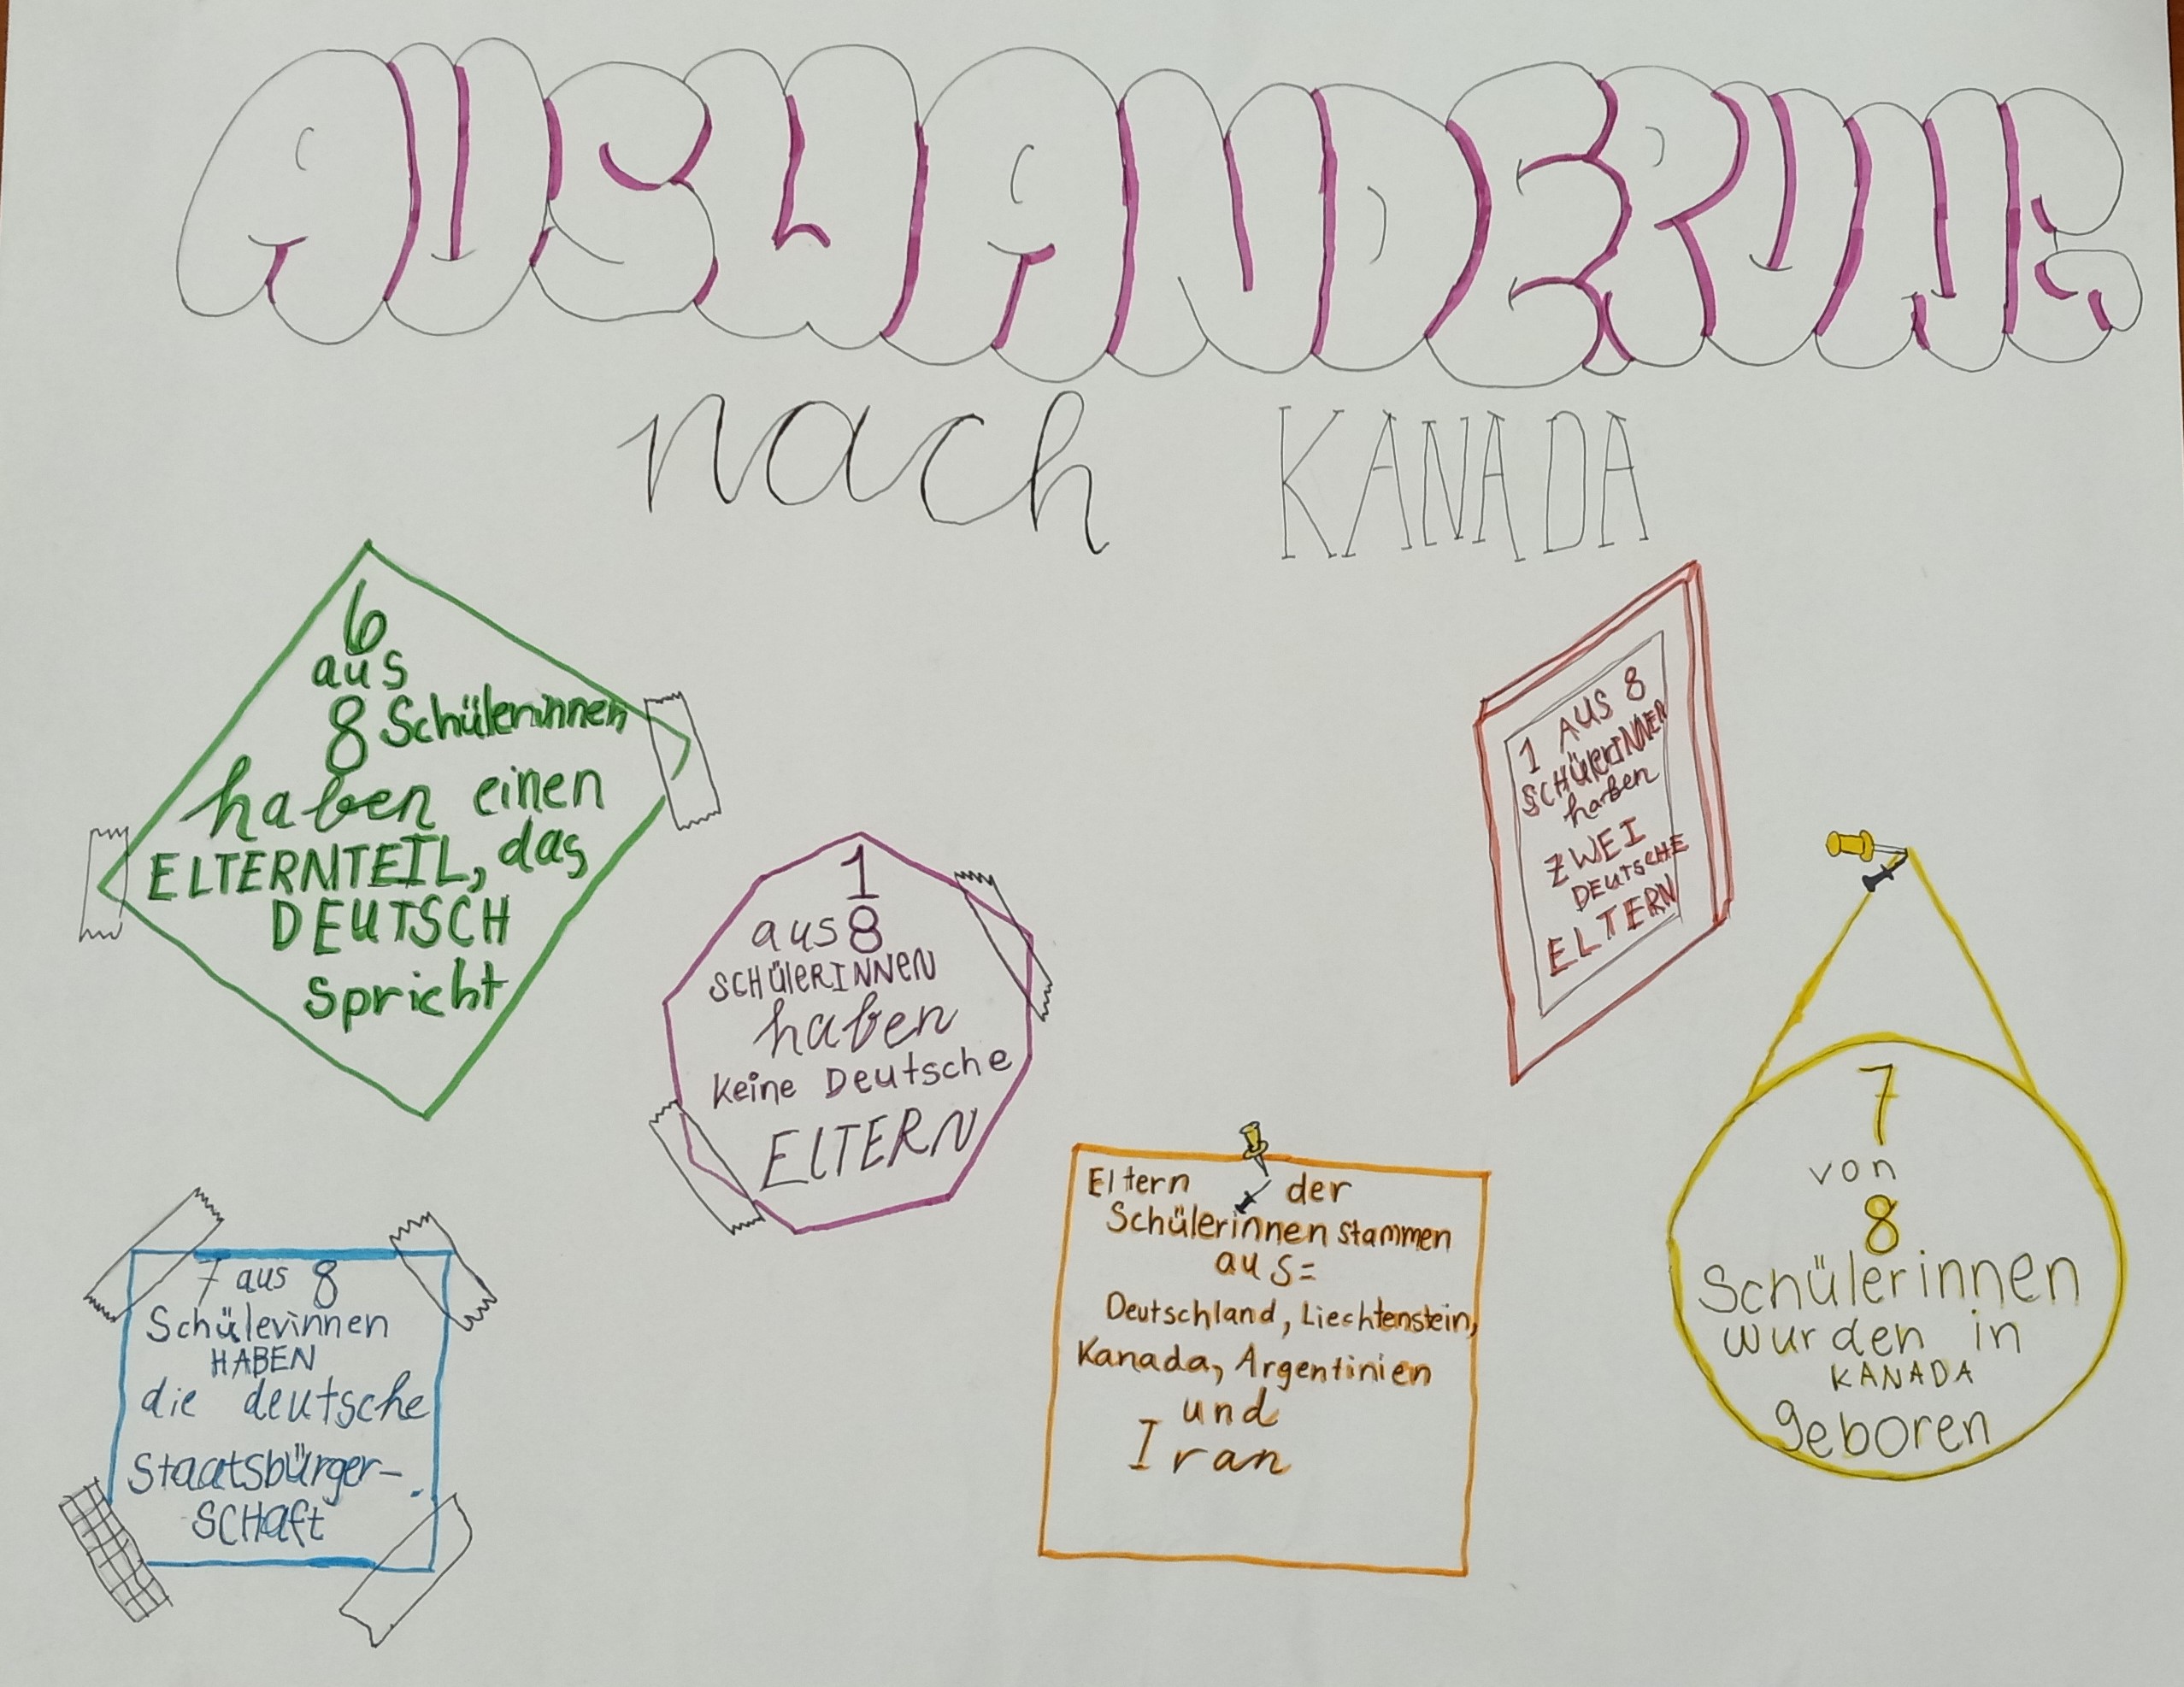 AUSWANDERUNG
nach KANADA
6
aus
8 Schülerinnen
haben einen
ELTERNTEIL, das
DEUTSCH
spricht
1
aus 8
SCHÜLERINNEN
haben
keine Deutsche
ELTERN
1 AUS 8
SCHÜLERINNEN
haben
ZWEI
DEUTSCHE
ELTERN
7
von
8
Schülerinnen
wurden in
KANADA
geboren
Eltern der
Schülerinnen stammen
aus=
Deutschland, Liechtenstein,
Kanada, Argentinien
und
Iran
7 aus 8
Schülerinnen
HABEN
die deutsche
Staatsbürger-
SCHaft